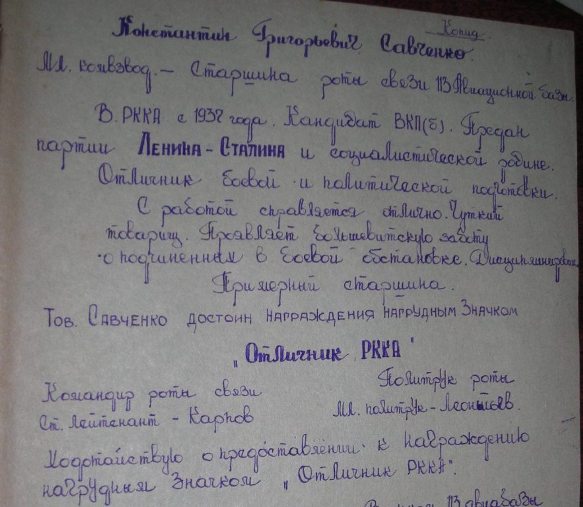 Копия
Константин Григорьевич Савченко.
Мл. комвзвод. - Старшина роты связи 113 Авиационной базы.
В РККА с 1937 года. Кандидат ВКП(б). Предан
партии Ленина-Сталина и социалистической родине.
Отличник боевой и политической подготовки.
С работой справляется отлично. Чуткий
товарищ. Проявляет большевитскую заботу
о подчиненных в боевой обстановке. Дисциплинирован
Примерный старшина.
Тов. Савченко достоин награждения нагрудным Значком
"Отличник РККА"
Командир роты связи
Ст. Лейтенант - Карпов
Политрук роты
Мл. политрук - Леонтьев.
Ходотайствую о предоставлении к награждению
нагрудным Значком "Отличник РККА".
113 авиабазы